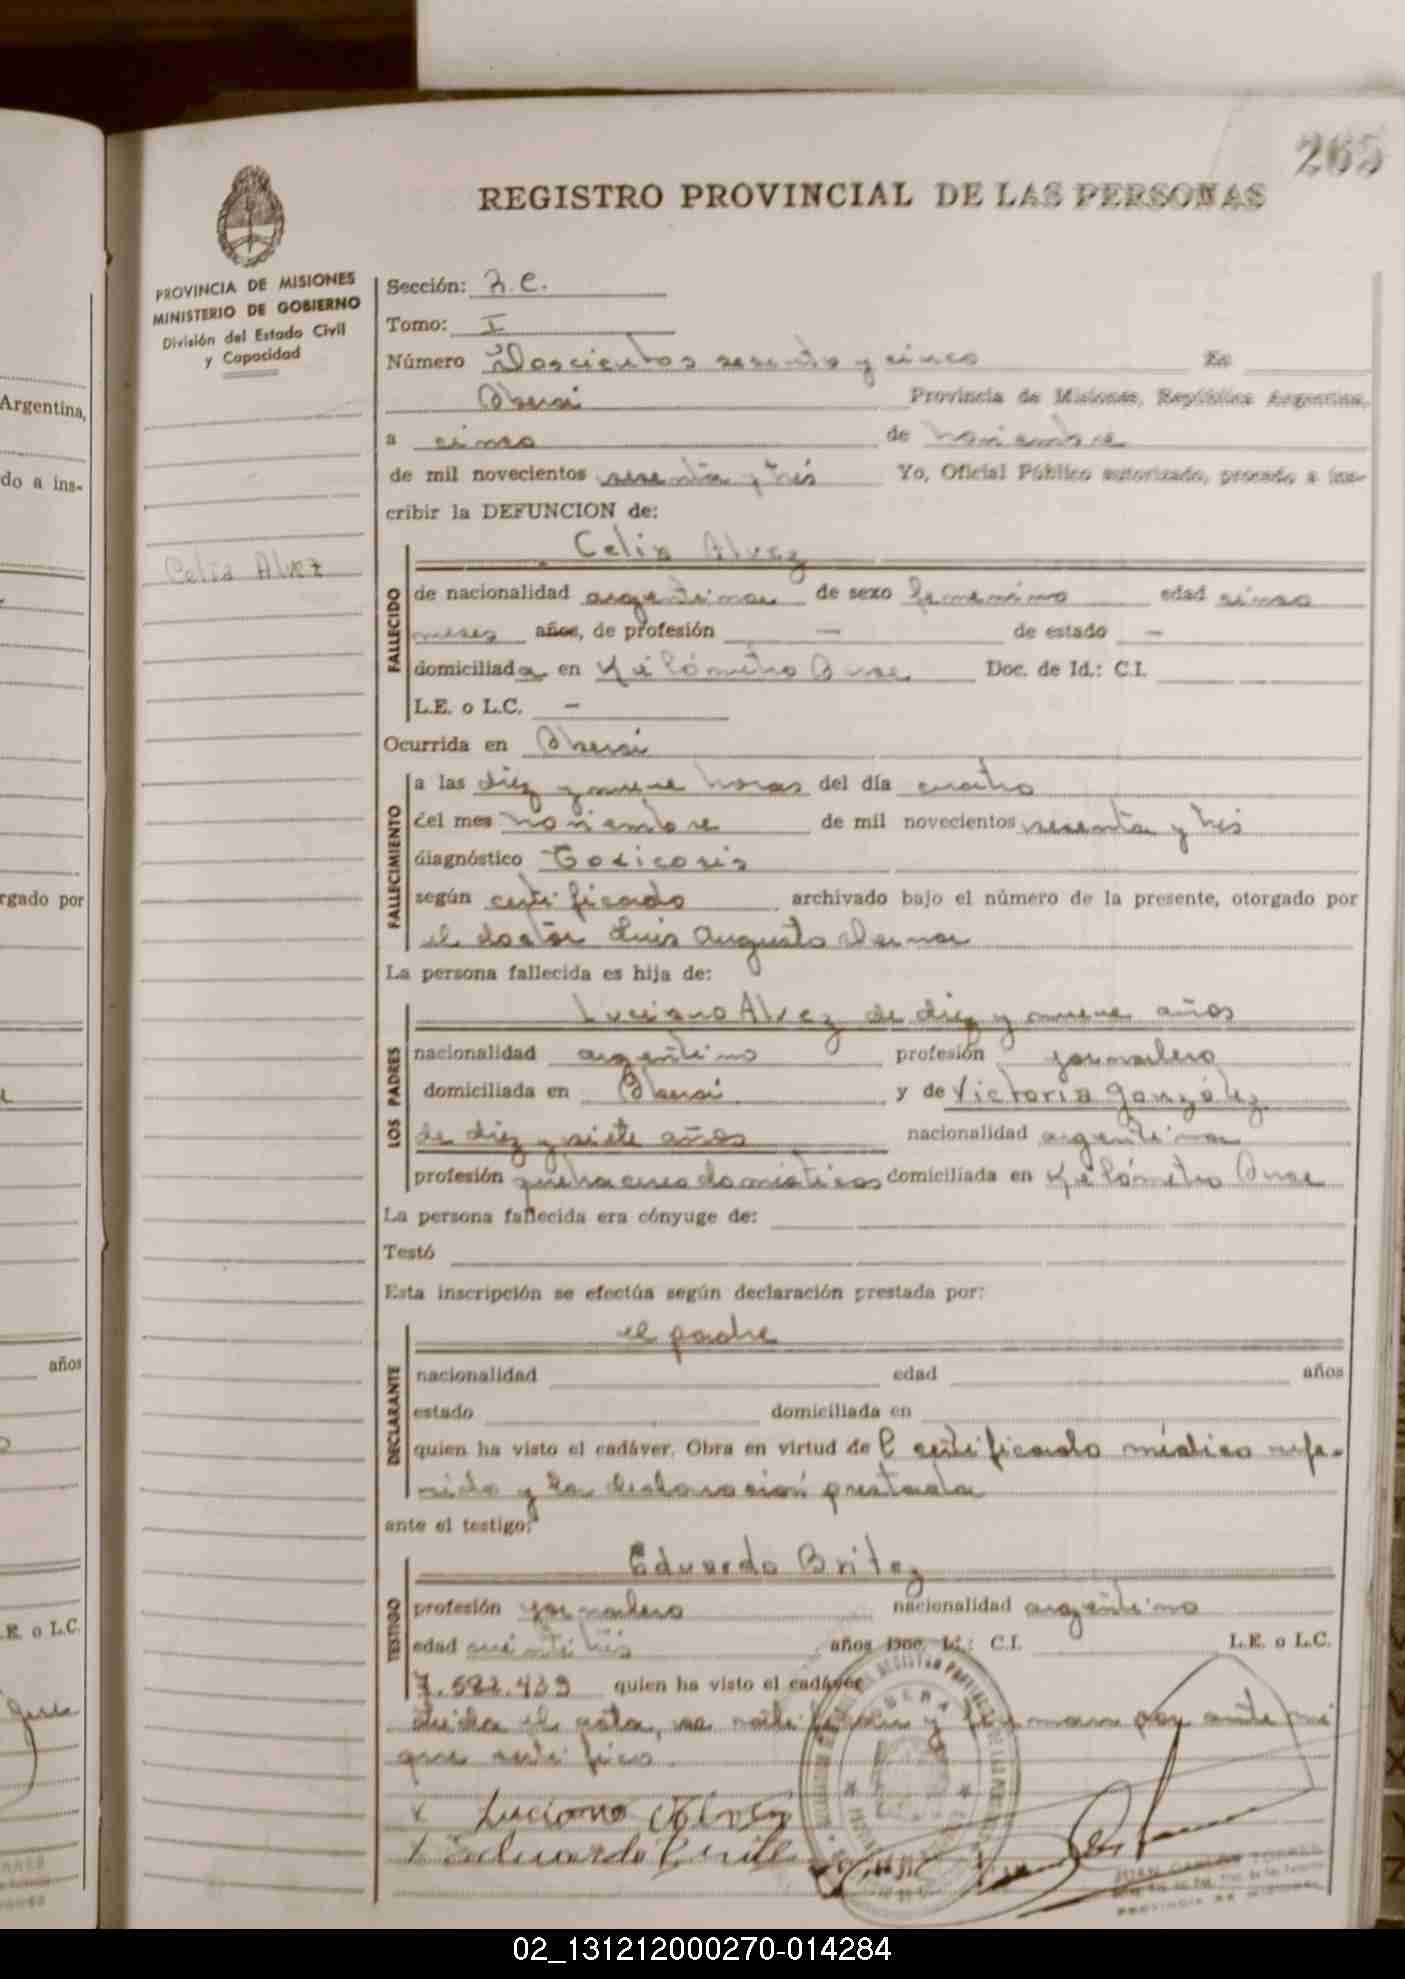 265
REGISTRO PROVINCIAL DE LAS PERSONAS
PROVINCIA DE MISIONES
MINISTERIO DE GOBIERNO
División del Estado Civil
y Capacidad
Sección:
Tomo: I
Número Doscientos sesenta y cinco En
Oberá Provincia de Misiones, República Argentina,
a cinco de noviembre
de mil novecientos sesenta y tres Yo, Oficial Público autorizado, procedo a ins-
cribir la DEFUNCION de:
Celia Alvez
Celia Alvez
FALLECIDO
de nacionalidad argentina de sexo femenino edad cinco
meses años, de profesión — de estado —
domiciliada en Kilómetro Once Doc. de Id.: C.I.
L.E. o L.C. —
Ocurrida en Oberá
FALLECIMIENTO
a las diez y nueve horas del día cuatro
del mes noviembre de mil novecientos sesenta y tres
diagnóstico Toxicosis
según certificado archivado bajo el número de la presente, otorgado por
el doctor Luis Augusto
La persona fallecida es hija de:
LOS PADRES
Luciano Alvez de diez y nueve años
nacionalidad argentino profesión jornalero
domiciliada en Oberá y de Victoria González
de diez y siete años nacionalidad argentina
profesión quehaceres domésticos domiciliada en Kilómetro Once
La persona fallecida era cónyuge de:
Testó
Esta inscripción se efectúa según declaración prestada por:
DECLARANTE
el padre
nacionalidad edad años
estado domiciliada en
quien ha visto el cadáver. Obra en virtud de l certificado médico refe-
rido y la declaración prestada
ante el testigo:
TESTIGO
Eduardo Britez
profesión jornalero nacionalidad argentino
edad treis años Doc. Id.: C.I. L.E. o L.C.
7.582.439 quien ha visto el cadáver
Leída el acta, se ratifican y firman por ante mi
que certifico.
x Luciano Alvez
x Eduardo
JUAN CARLOS TORRES
PROVINCIA DE MISIONES
Argentina,
do a ins-
rgado por
años
.E. o L.C.
02_131212000270-014284